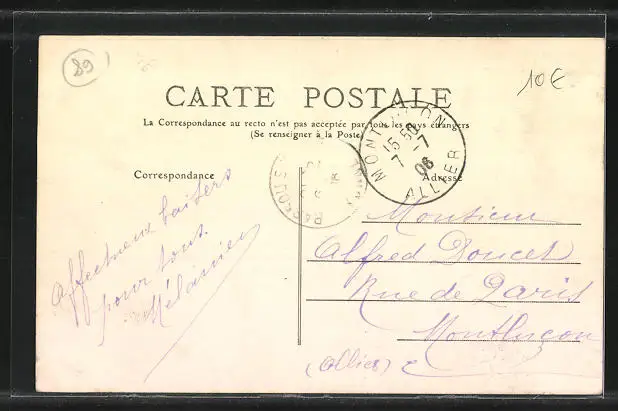 89
10€
CARTE POSTALE
La Correspondance au recto n'est pas acceptée par tous les pays étrangers
(Se renseigner à la Poste)
MONTLUÇON
15 50
7 - 7
06
ALLIER
Correspondance
Adresse
Affectueux baisers
pour tous
Monsieur
Alfred Doucet
Rue de Paris
Montluçon
(Allier)